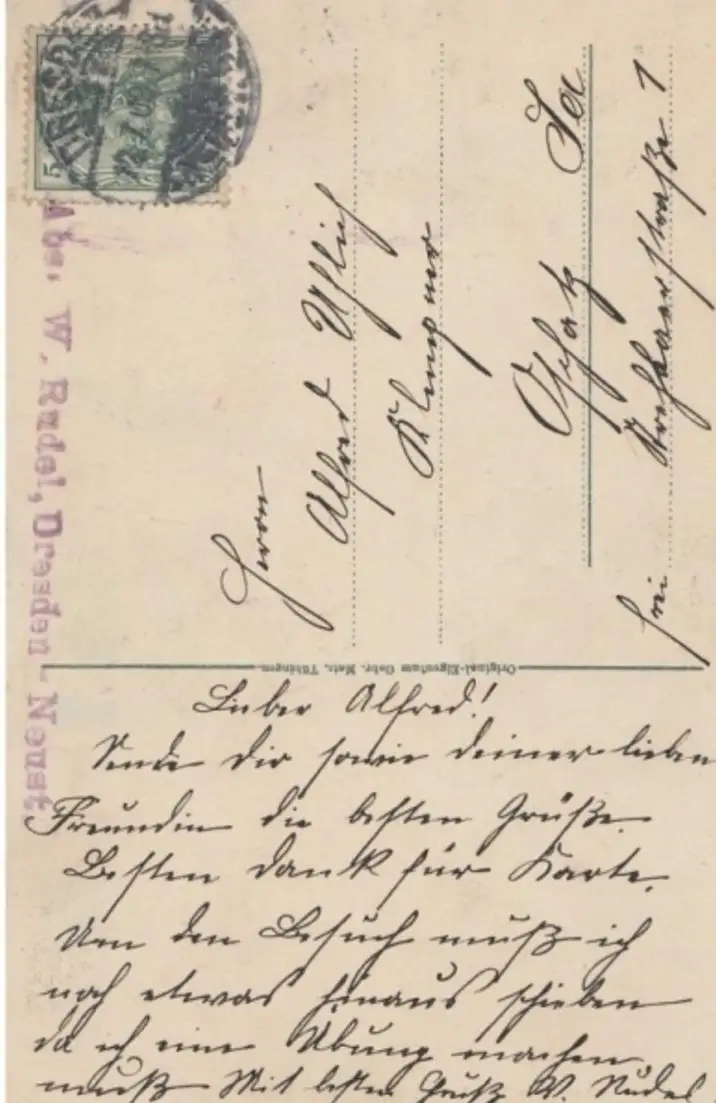 5
DRESD
12.7.09
Abs. W. Rudel, Dresden-Neust
Herrn
Alfred Uhlich
Klempner
Oschatz Sa
frei Strehlaerstraße 1
Original-Eigentum Gebr. Metz, Tübingen.
Lieber Alfred!
Sende dir sowie deiner lieben
Freundin die besten Grüße.
Besten Dank für Karte.
den Besuch muß ich
noch etwas hinaus schieben
da ich eine Übung machen
muß Mit besten Gruß W. Rudel